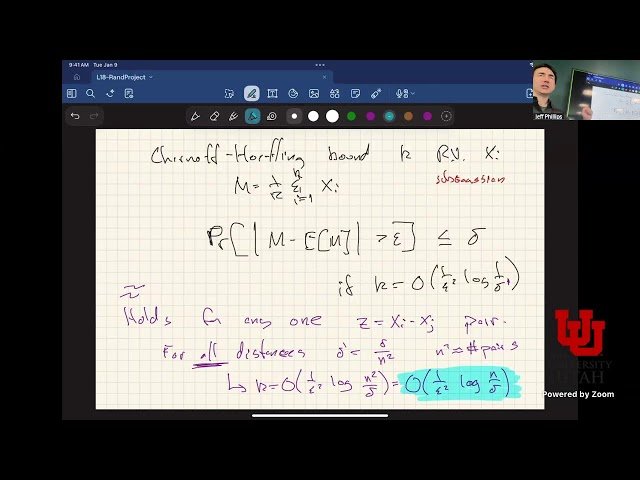 9:41 AM Tue Jan 9
L18-RandProject
Jeff Phillips
Chernoff-Hoeffding bound k R.V. Xi
M = 1/k Σ_{i=1}^{k} Xi
subgaussian
Pr[ | M - E[M] | > ε ] ≤ δ
if k = O( 1/ε² log 1/δ' )
Holds for any one z = Xi - Xj pair.
For all distances δ' = δ/n² n² ≈ # pairs
↳ k = O( 1/ε² log n²/δ ) = O( 1/ε² log n/δ )
UNIVERSITY
UTAH
Powered by Zoom